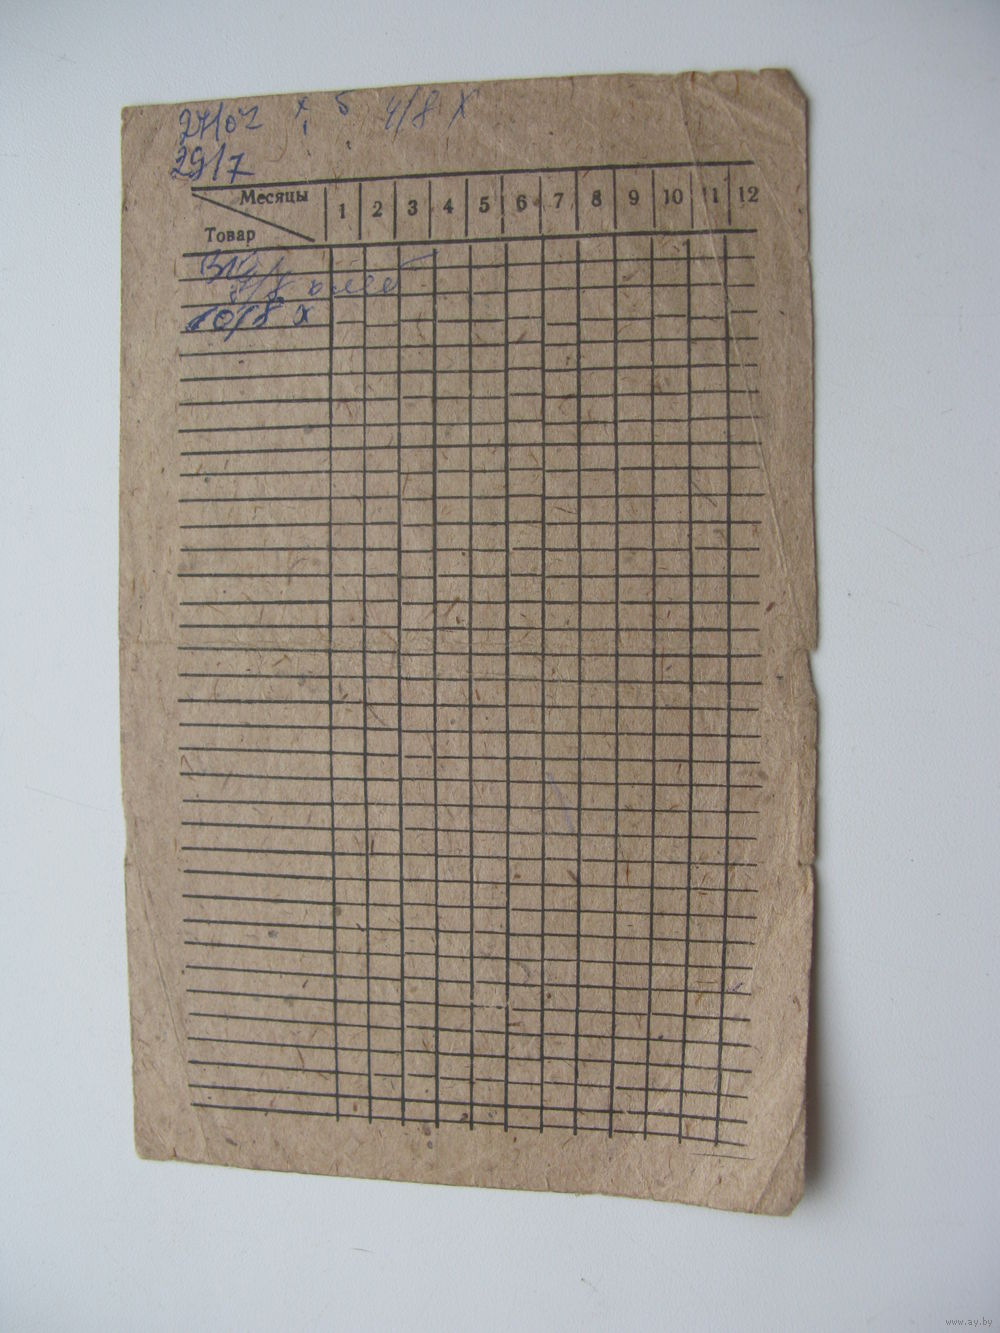 27/07 х б 4/8 X
29/7
Месяцы 1 2 3 4 5 6 7 8 9 10 11 12
Товар
10/8 х
www.ay.by